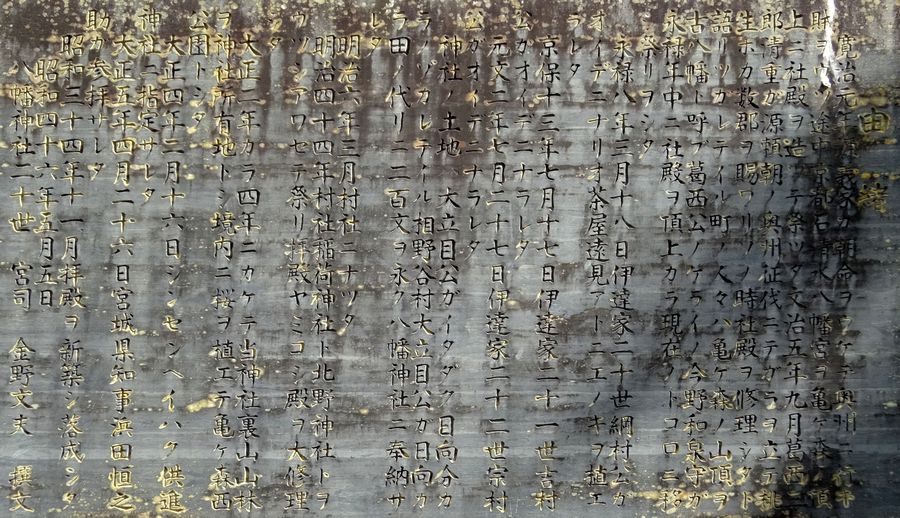 由緒
寛治元年源義家ガ朝命ヲウケテ奥州ニ行キ
財ヲ途中京都石清水八幡宮ヲ亀ヶ森ノ頂
上ニ社殿ヲ造ッテ祭ツタ文治五年九月葛西三
郎清重ガ源頼朝ノ奥州征伐ニテガラヲ立テ
生ホカ数郡ヲ賜ワリソノ時社殿ヲ修理シタト
語リツガレテイル町ノ人々ハ亀ヶ森ノ山頂ヲ
古八幡ト呼ブ葛西公ノケライノ今野和泉守ガ
永禄年中ニ社殿ヲ頂上カラ現在ノトコロニ移
シ祭リヲシタ
永禄八年三月十八日伊達家二十世綱村公ガ
オイデニナリオ茶屋遠見アトニエノキヲ植エ
ラレタ
京保十三年七月十七日伊達家二十一世吉村
公ガオイデニナラレタ
元文二年七月二十七日伊達家二十二世宗村
公ガオイデニナラレタ
神社ノ土地ハ大立目公ガイタダク日向分カ
ラノゾカレテイル相野谷村大立目公ガ日向カ
ラ田ノ代リニ二百文ヲ永ク八幡神社ニ奉納サ
レタ
明治六年三月村社ニナツタ
明治四十四年村社稲荷神社ト北野神社トヲ
ウツシアワセテ祭リ拝殿ヤミコシ殿ヲ大修理
大正二年カラ四年ニカケテ当神社裏山山林
ヲ神社所有地トシ境内ニ桜ヲ植エテ亀ヶ森西
公園トシタ
大正四年二月十六日シンセンヘイハク供進
神社ニ指定サレタ
大正五年四月二十六日宮城県知事浜田恒之
助ガ参拝サレタ
昭和三十四年十一月拝殿ヲ新築シ落成シタ
昭和四十六年五月五日
八幡神社二十世 宮司 金野文夫 撰文